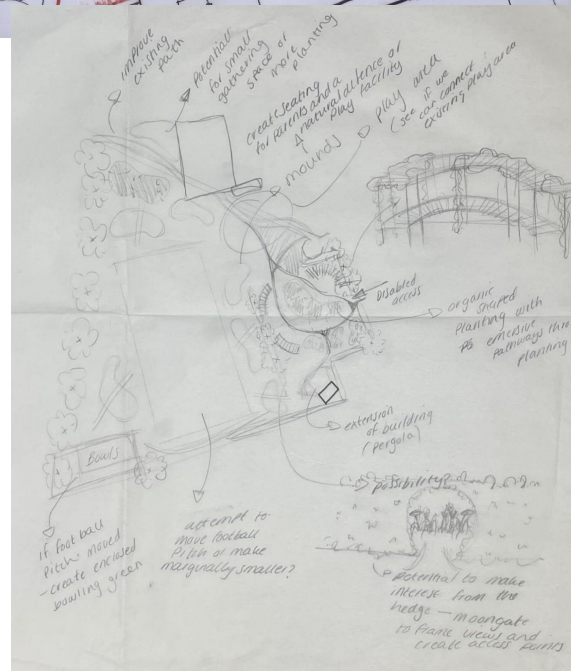 improve
existing
path
Potential
for small
gathering
space or
more
planting
create seating
for parents and a
natural defence or
play facility
mounds
play area
(see if we
can connect
existing play area
Disabled
access
organic
shaped
planting with
pathways thro
planting
extension
of building
(pergola)
Bowls
if football
pitch moved
- create enclosed
bowling green
attempt to
move football
Pitch or make
marginally smaller?
possibility
potential to make
interest from the
hedge - moongate
to frame views and
create access points